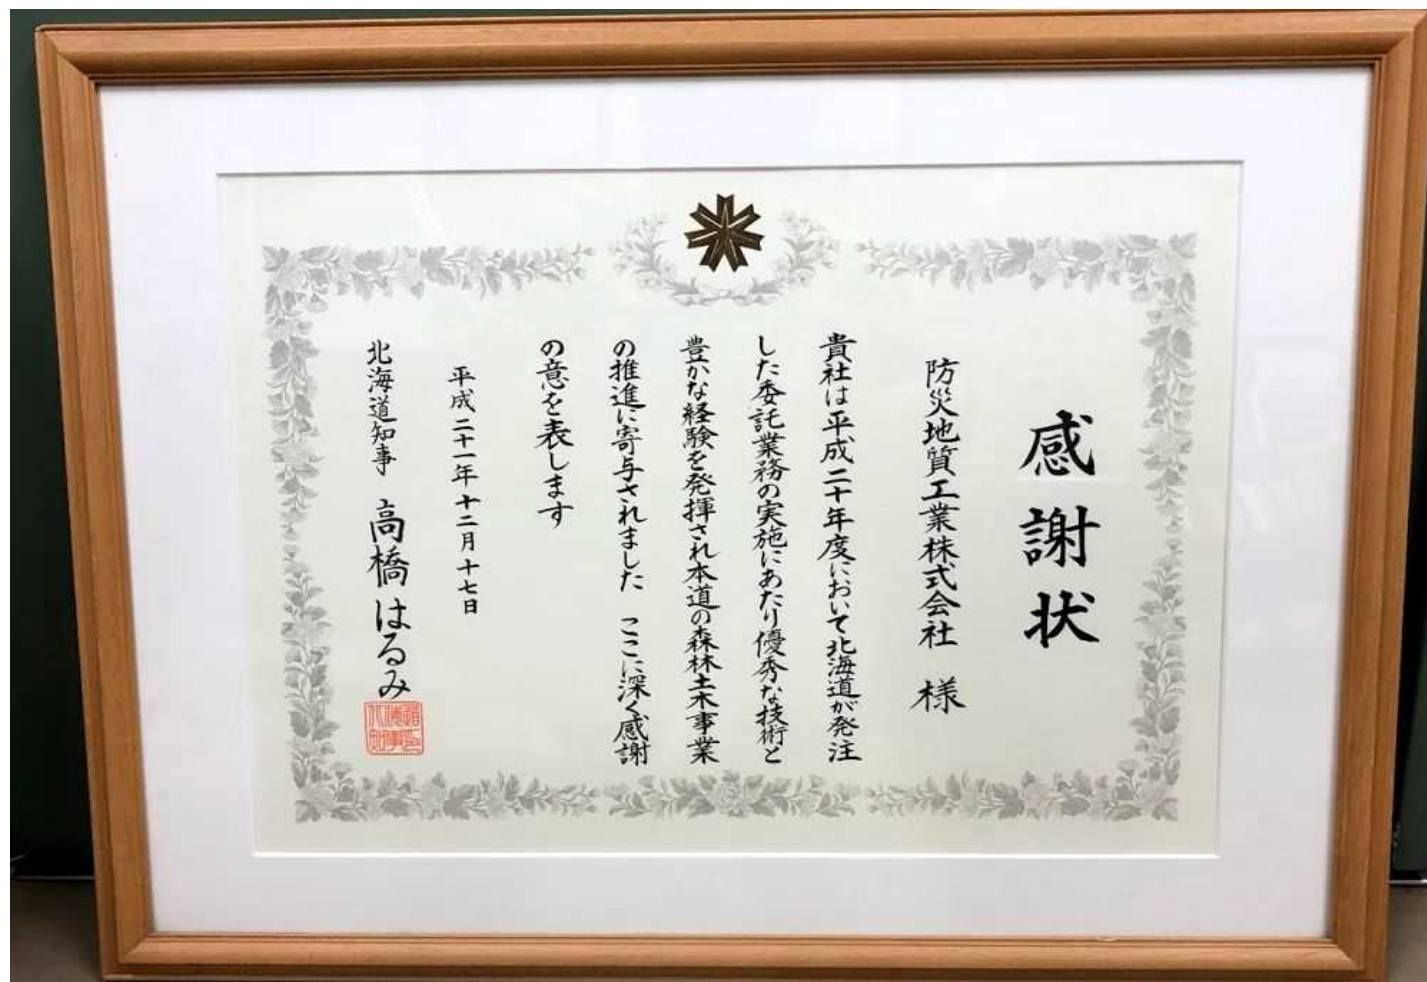 感謝状
防災地質工業株式会社 様
貴社は平成二十年度において北海道が発注
した委託業務の実施にあたり優秀な技術と
豊かな経験を発揮され本道の森林土木事業
の推進に寄与されました ここに深く感謝
の意を表します
平成二十一年十二月十七日
北海道知事 高橋はるみ